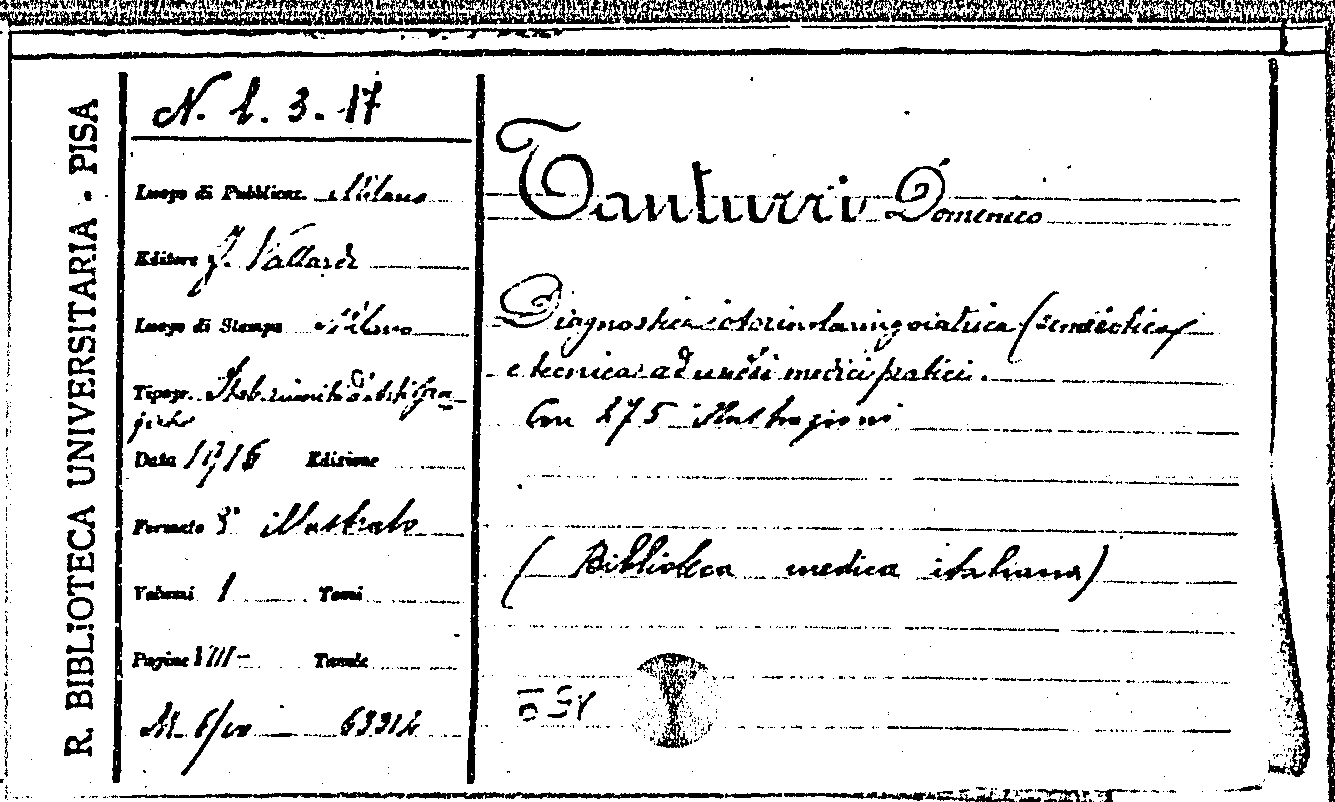 R. BIBLIOTECA UNIVERSITARIA - PISA
N. 1. 3. 17
Luogo di Pubblicaz. Milano
Editore F. Vallardi
Luogo di Stampa Milano
Tipogr.
Data 1916 Edizione
Formato 8° illustrato
Volumi 1 Tomi
Pagine VIII- Tavole
63312
Tanturri Domenico
Diagnostica otorinolaringoiatrica (semeiotica
e tecnica) ad uso dei medici pratici.
Con 275 illustrazioni
(Biblioteca medica italiana)